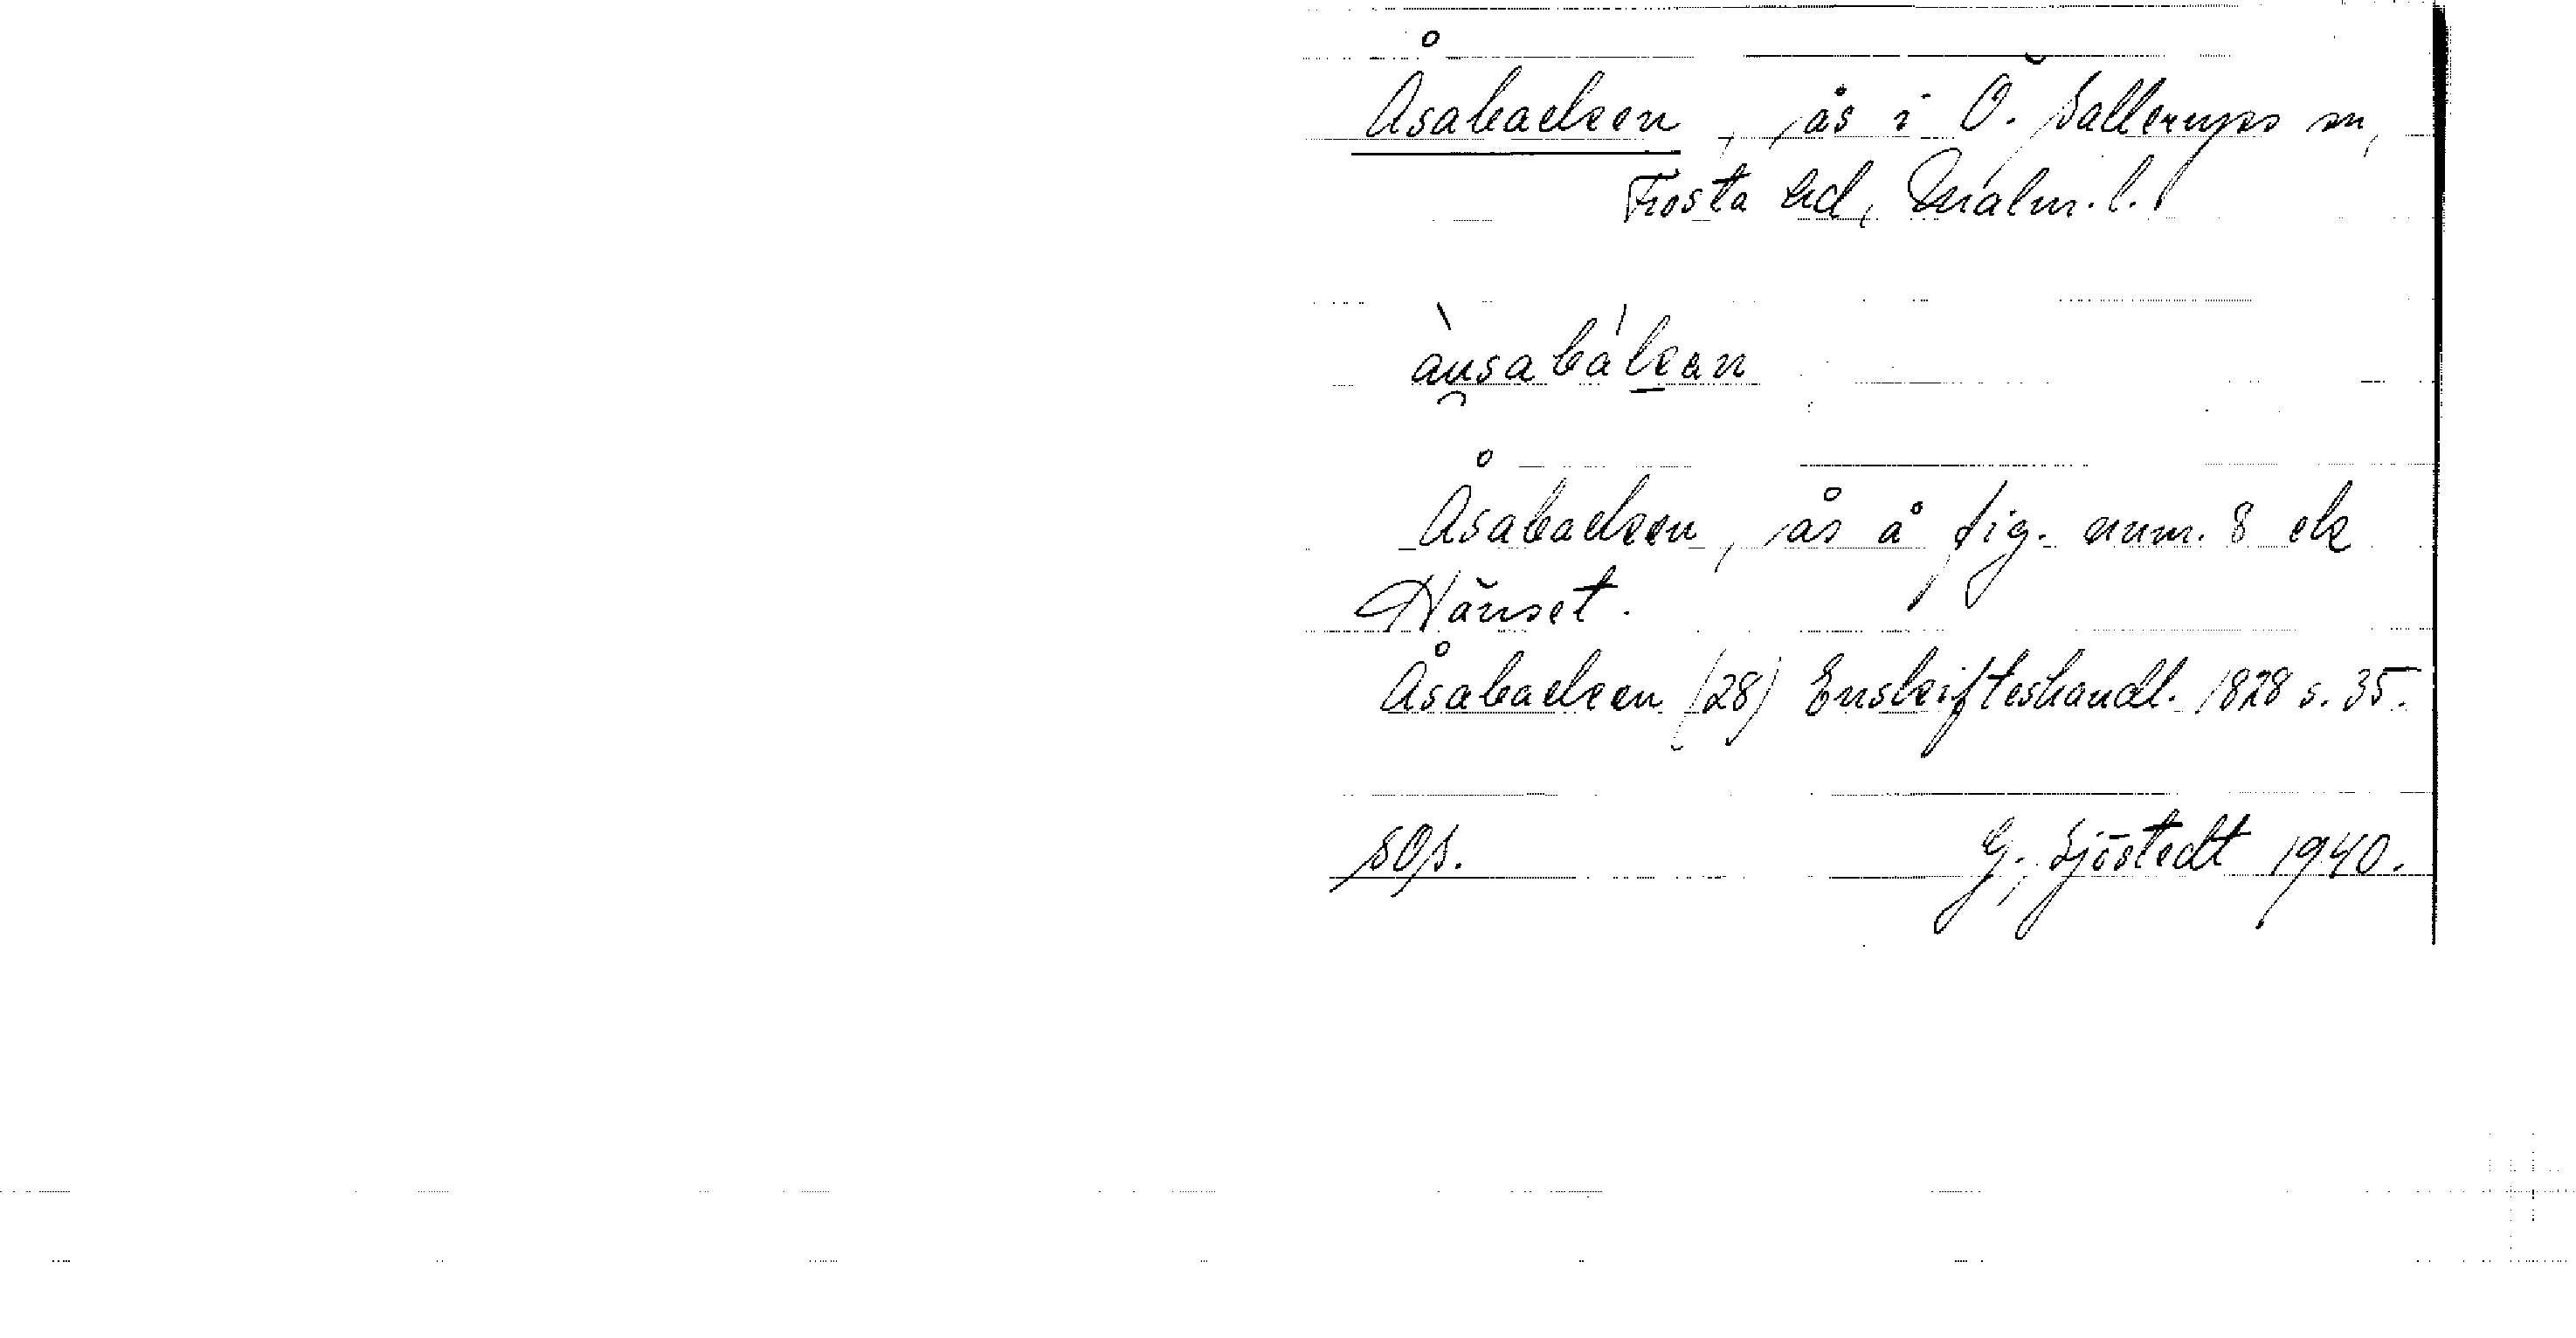 Åsabacken, ås i Ö. Sallerups sn,
Frosta hd, Malm. l.
àu̯sabákan
Åsabacken, ås å fig. num. 8 ek
Hänset.
Åsabacken (28) Enskifteshandl. 1828 s. 35.
SOS. G. Sjöstedt 1940.